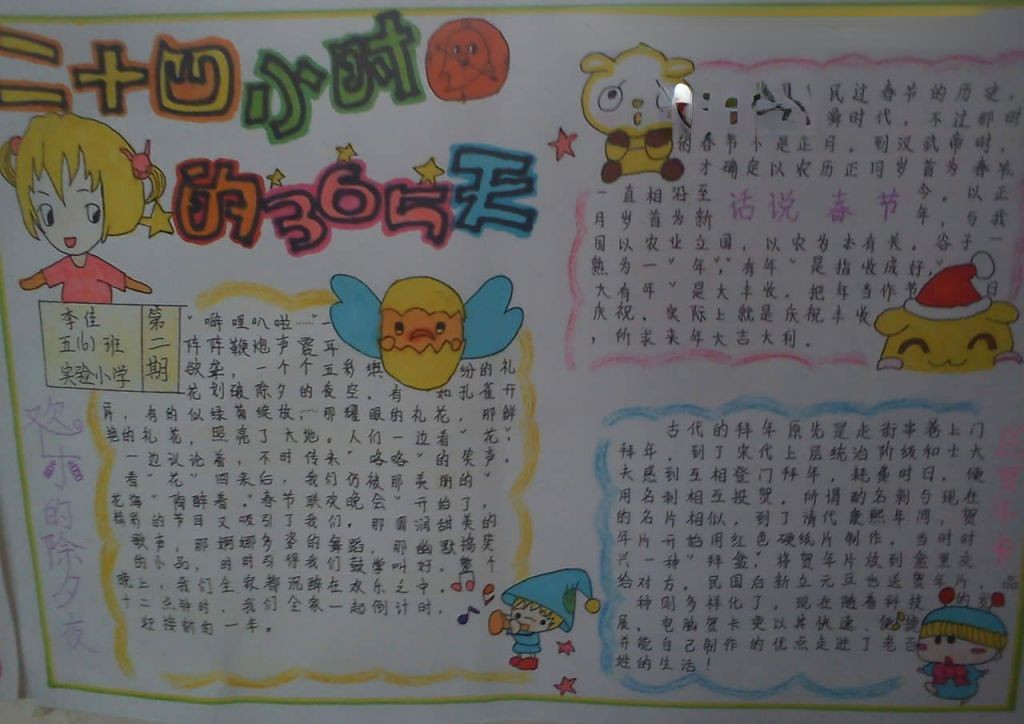 二十四小时
的365天
李佳
五(6)班
实验小学
第二期
欢乐的除夕夜
“噼哩叭啦……”一
阵阵鞭炮声震耳
欲聋，一个个五彩缤纷的礼
花划破除夕的夜空。有如孔雀开
屏，有的似绿菊绽放……那耀眼的礼花，那鲜
艳的礼花，照亮了大地。人们一边看“花”，
一边议论着，不时传来“咯咯”的笑声。
看“花”回来后，我们仍被那美丽的“
花海”陶醉着。“春节联欢晚会”开始了，
精彩的节目又吸引了我们。那圆润甜美的
歌声，那婀娜多姿的舞蹈，那幽默搞笑
的小品，时时引得我们鼓掌叫好。整个
晚上，我们全家都沉醉在欢乐之中。
十二点钟时，我们全家一起倒计时，
迎接新的一年。
话说春节
民过春节的历史。
舜时代，不过那时
的春节不是正月。到汉武帝时，
才确定以农历正月岁首为春节，
一直相沿至今。以正
月岁首为新年，与我
国以农业立国，以农为本有关。谷子一
熟为一“年”，“有年”是指收成好，“
大有年”是大丰收。把年当作节日
庆祝，实际上就是庆祝丰收
，所求来年大吉大利。
古代的拜年原先是走街串巷上门
拜年，到了宋代上层统治阶级和士大
夫感到互相登门拜年，耗费时日，便
用名刺相互投贺。所谓的名刺与现在
的名片相似，到了清代康熙年间，贺
年片开始用红色硬纸片制作。当时时
兴一种“拜盒”，将贺年片放到盒里交
给对方。民国后新立元旦也送贺年片，品
种则多样化了，现在随着科技的发
展，电脑贺卡更以其快速、便捷
并能自己制作的优点走进了老百
姓的生活！